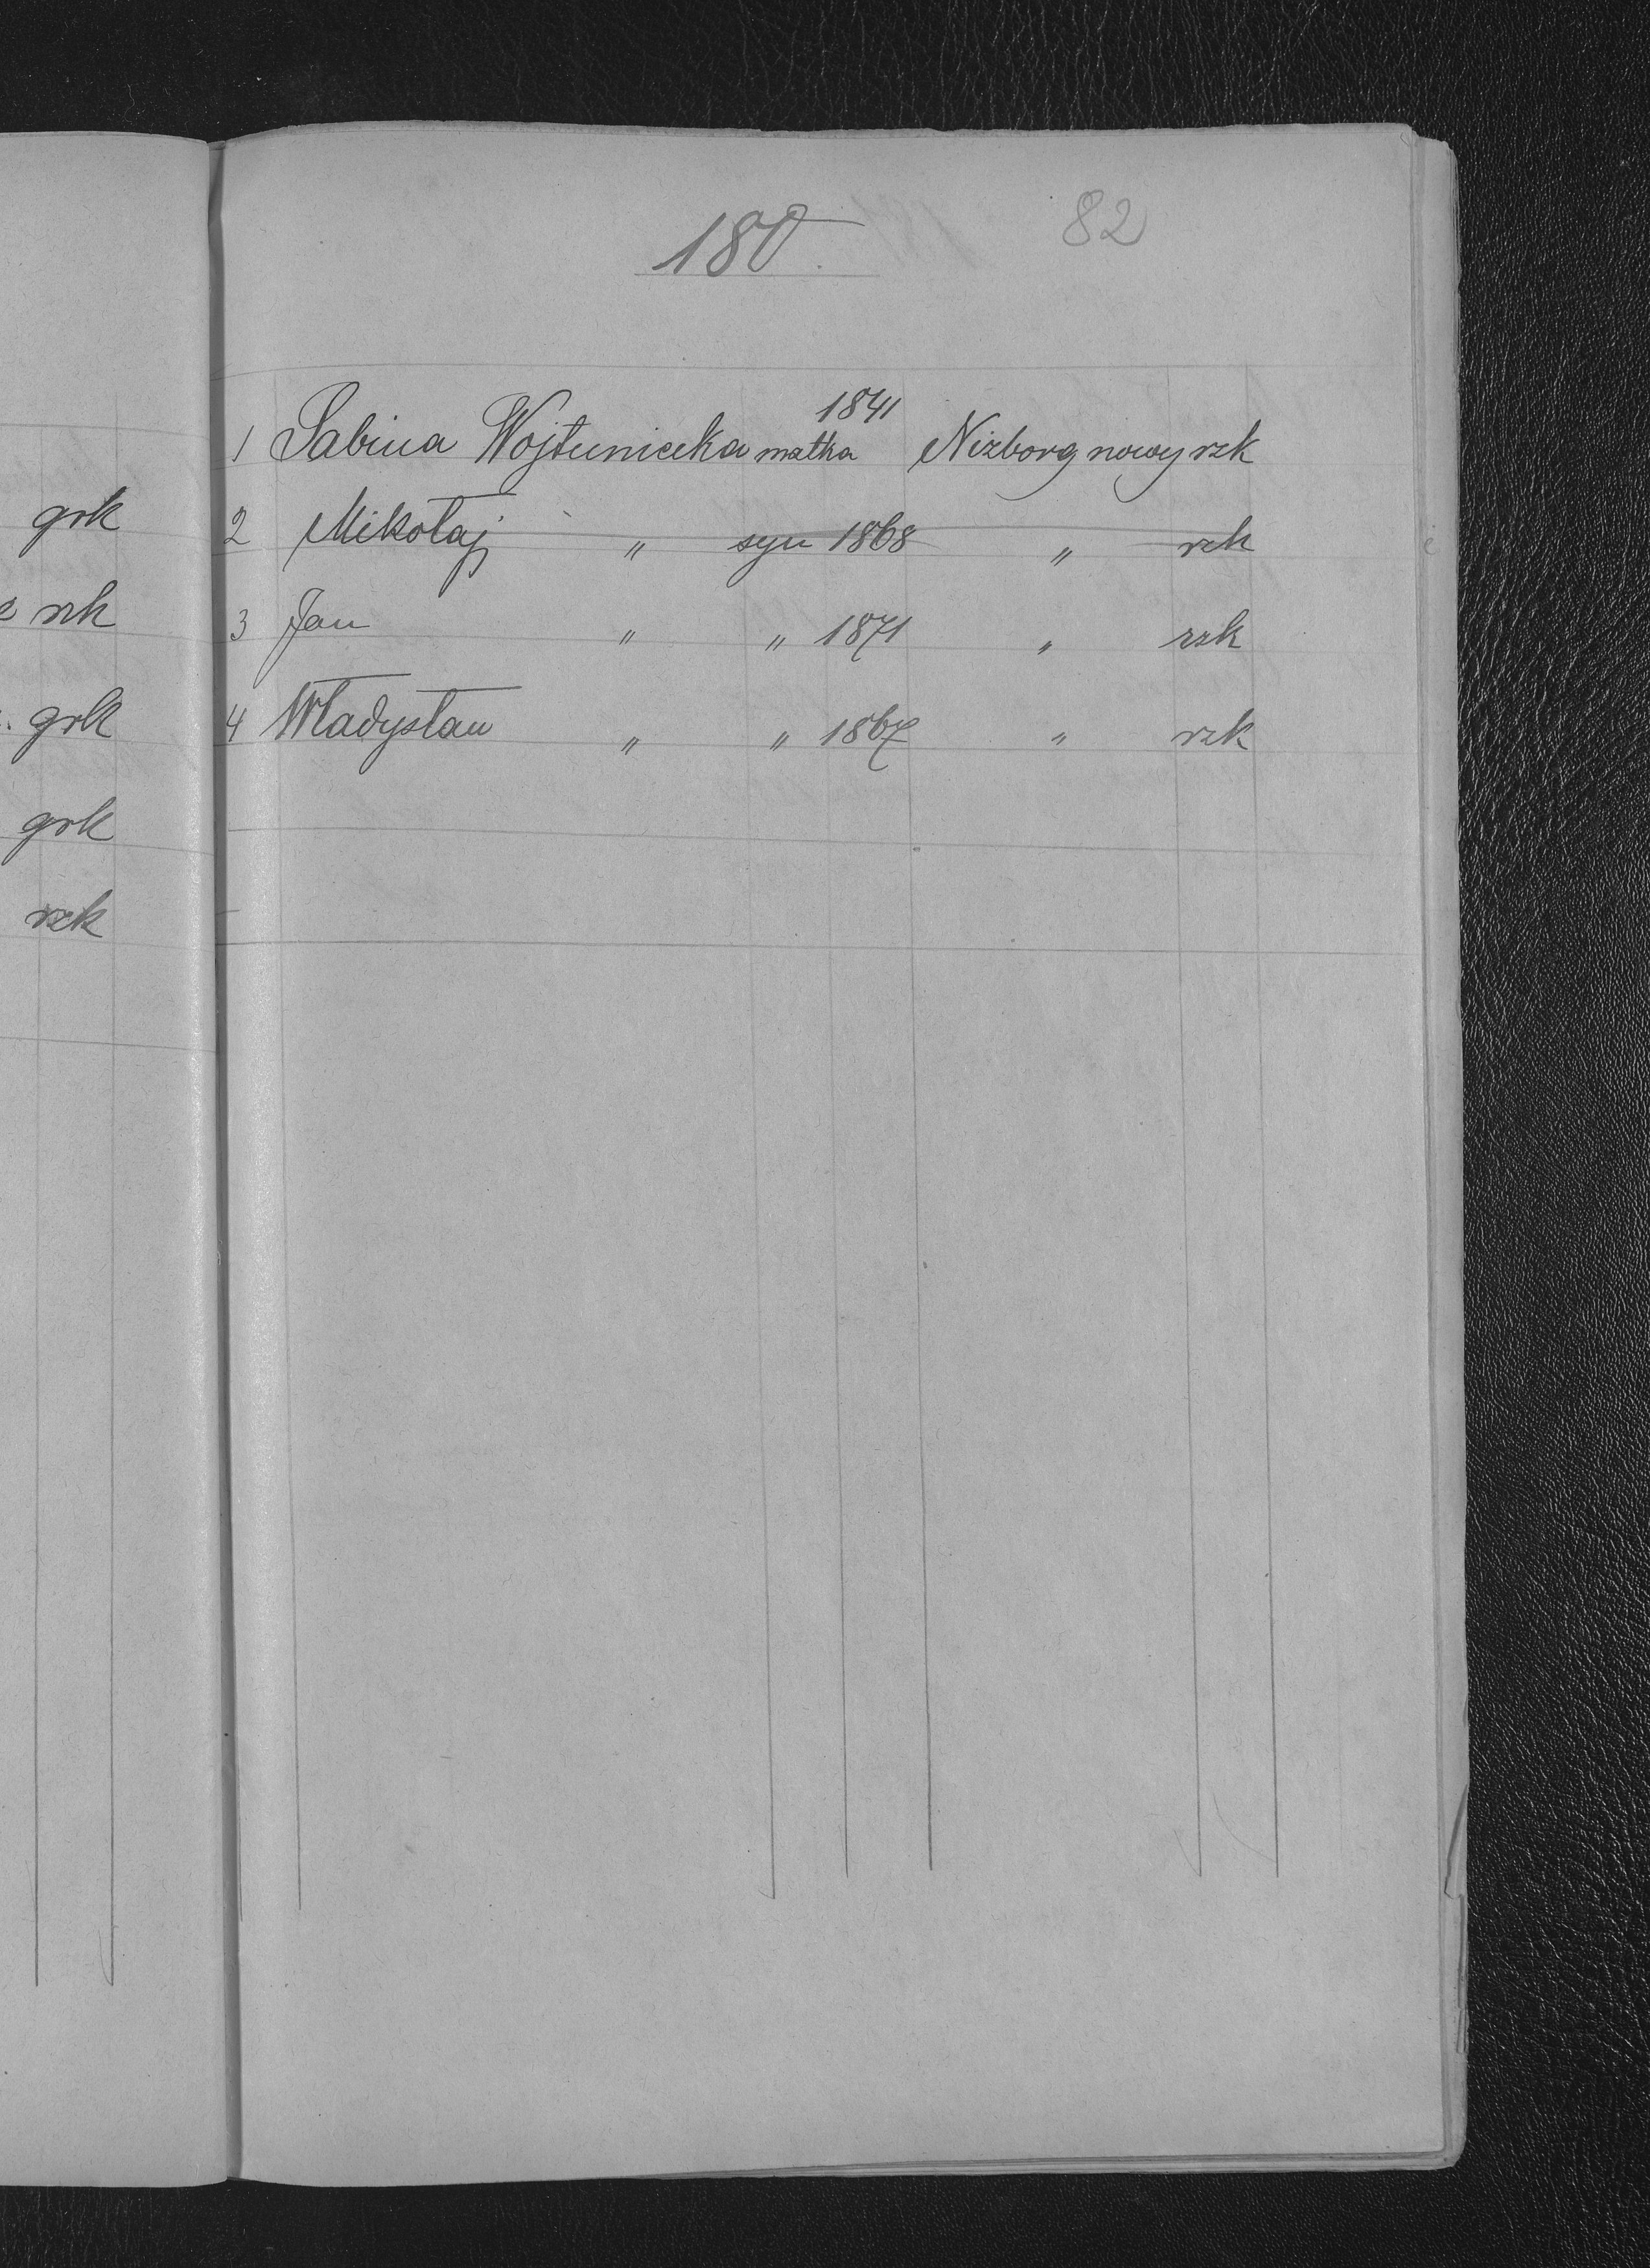 180.
82
1 Sabina Wojtunicka matka 1841 Nizborg nowy rzk
2 Mikołaj " syn 1868 " rzk
3 Jan " " 1871 " rzk
4 Władysław " " 1867 " rzk
grk
rzk
grk
grk
rzk